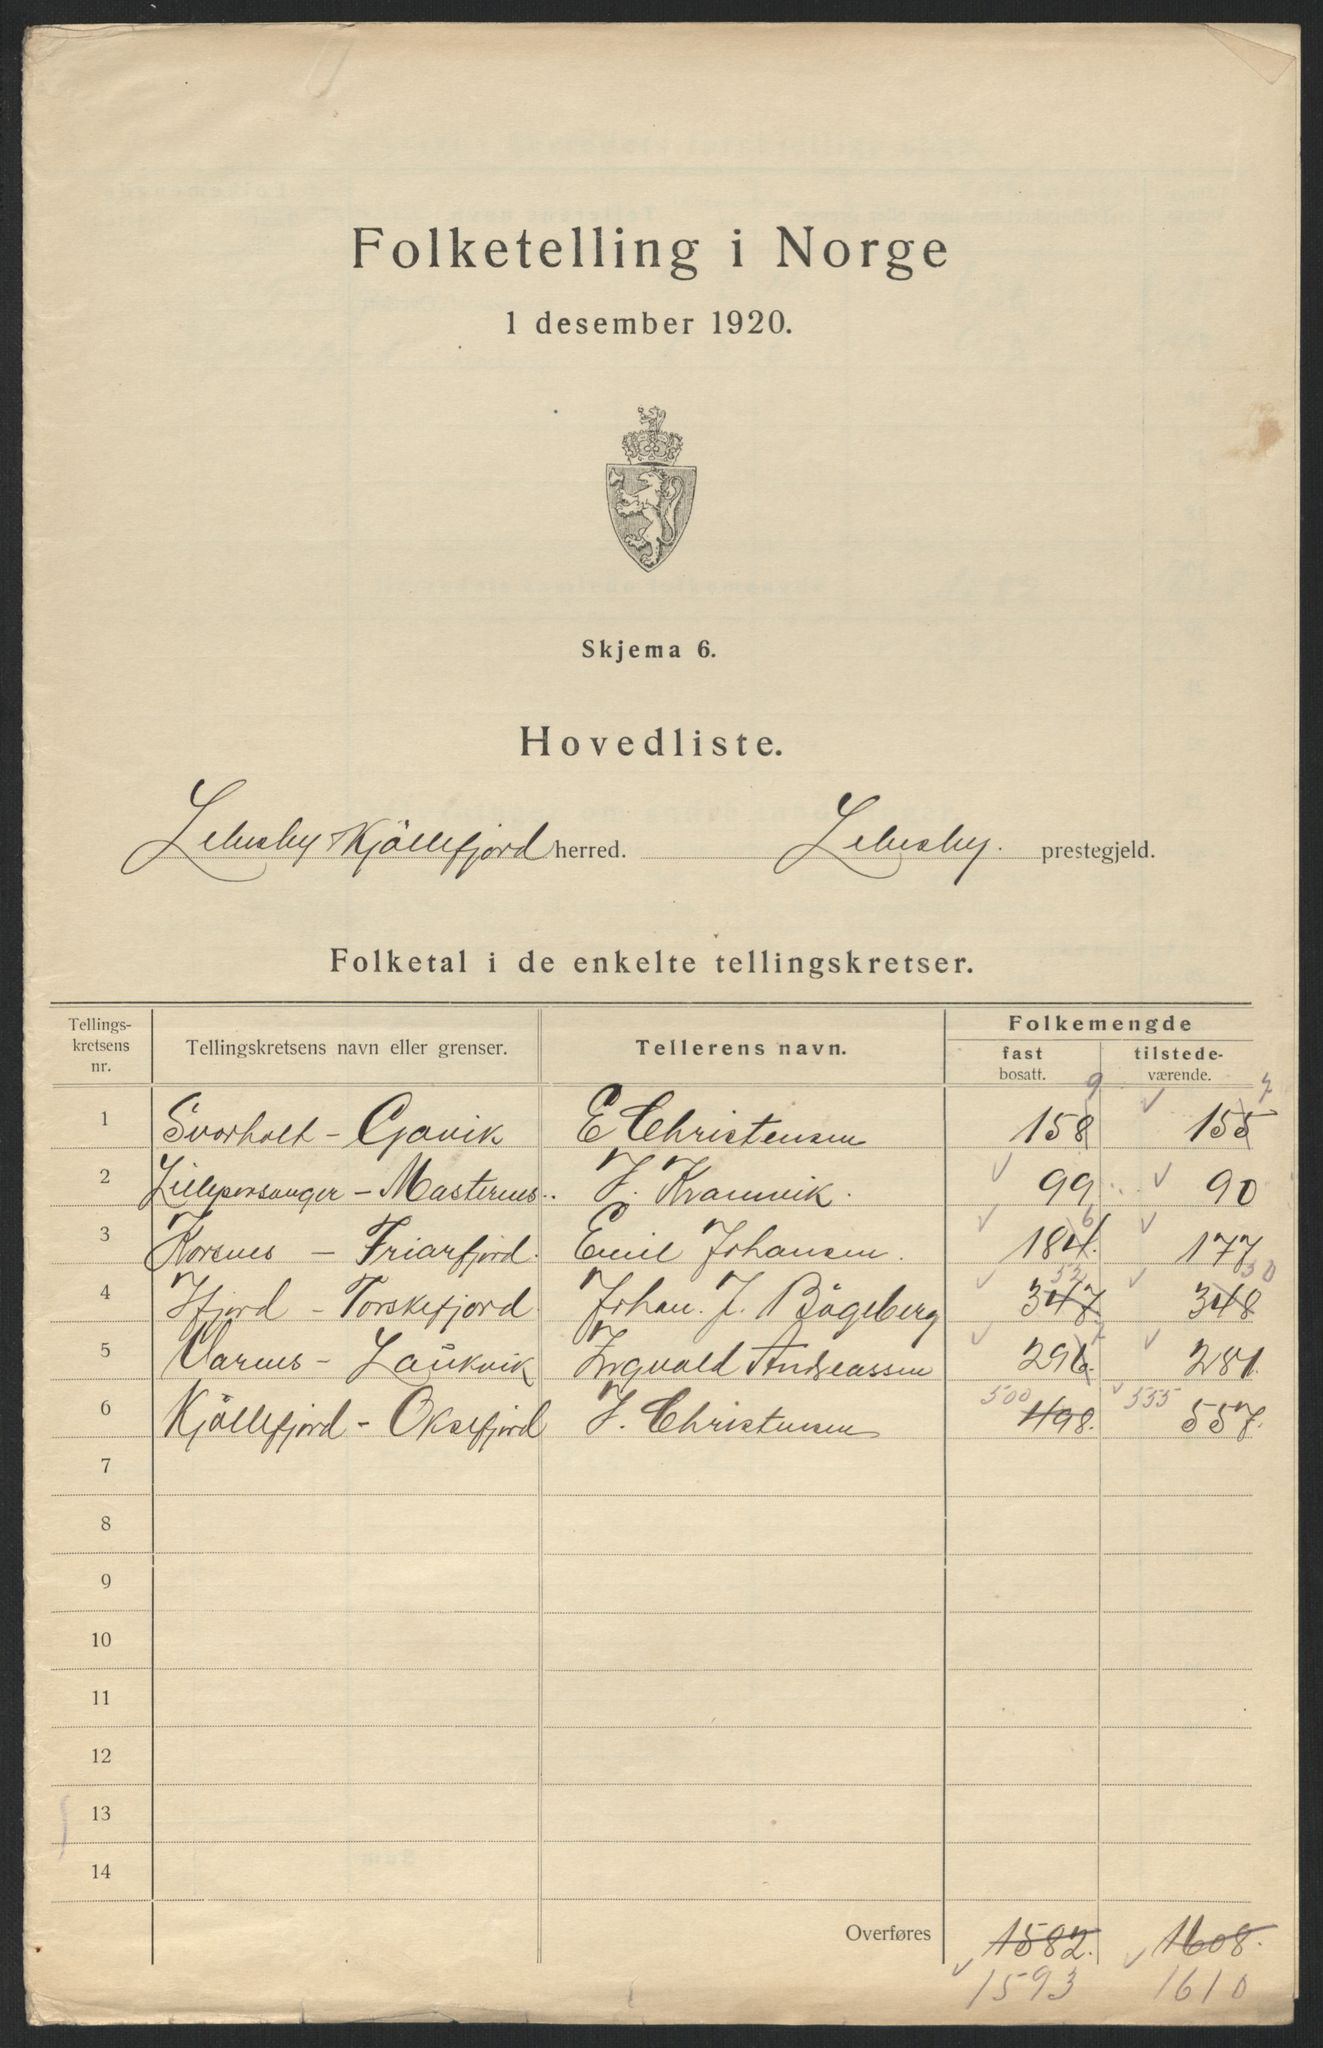 Folketelling i Norge
1 desember 1920.
Skjema 6.
Hovedliste.
Lebesby Kjöllefjord herred. Lebesby. prestegjeld.
Folketal i de enkelte tellingskretser.
Tellings-kretsens nr. Tellingskretsens navn eller grenser. Tellerens navn. Folkemengde
fast bosatt. tilstede-værende.
9 7
1 Svorholt - Gavik E Christensen 158 155
2 Lillepersanger - Masternes J. Kramvik. 99 90
6
3 Korsnes - Friarfjord. Emil Johansen. 184. 177
52 50
4 Ifjord - Torskefjord Johan. J. Bögeberg 347 348
7
5 - Laukvik Ingvald Andreassen 296. 281.
500 555
6 Kjöllefjord - Oksefjord J. Christensen 498. 557.
7
8
9
10
11
12
13
14
Overføres 1582. 1608.
1593 1610